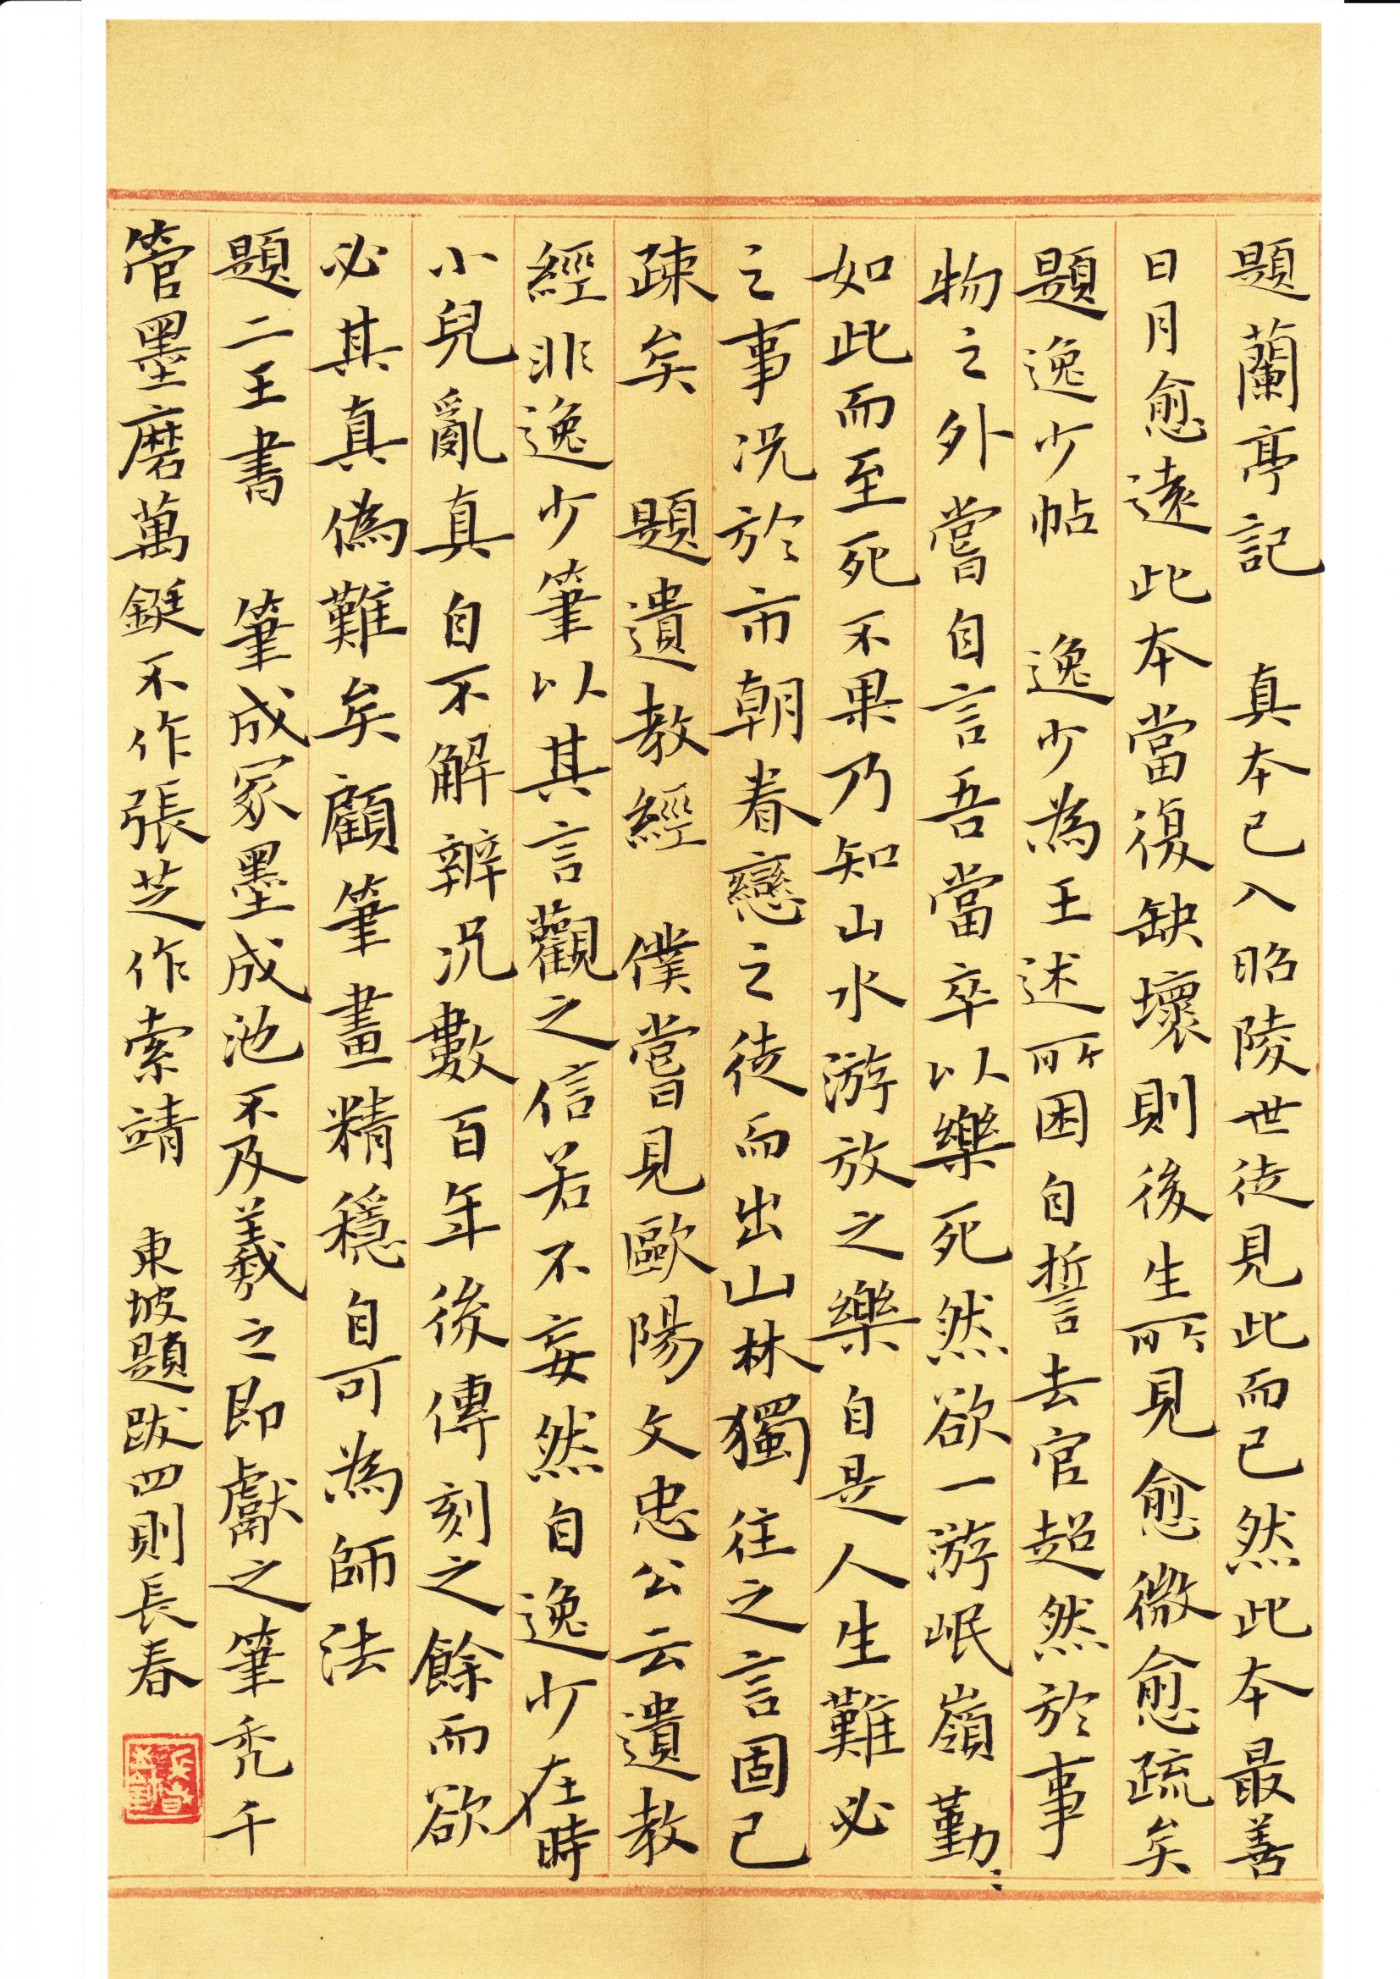 題蘭亭記　真本已入昭陵世徒見此而已然此本最善
日月愈遠此本當復缺壞則後生所見愈微愈疏矣
題逸少帖　逸少為王述所困自誓去官超然於事
物之外嘗自言吾當卒以樂死然欲一游岷嶺勤〻
如此而至死不果乃知山水游放之樂自是人生難必
之事況於市朝眷戀之徒而出山林獨往之言固已
疎矣　題遺教經　僕嘗見歐陽文忠公云遺教
經非逸少筆以其言觀之信若不妄然自逸少在時
小兒亂真自不解辨況數百年後傳刻之餘而欲
必其真偽難矣顧筆畫精穩自可為師法
題二王書　筆成冢墨成池不及羲之即獻之筆禿千
管墨磨萬鋌不作張芝作索靖　東坡題跋四則長春